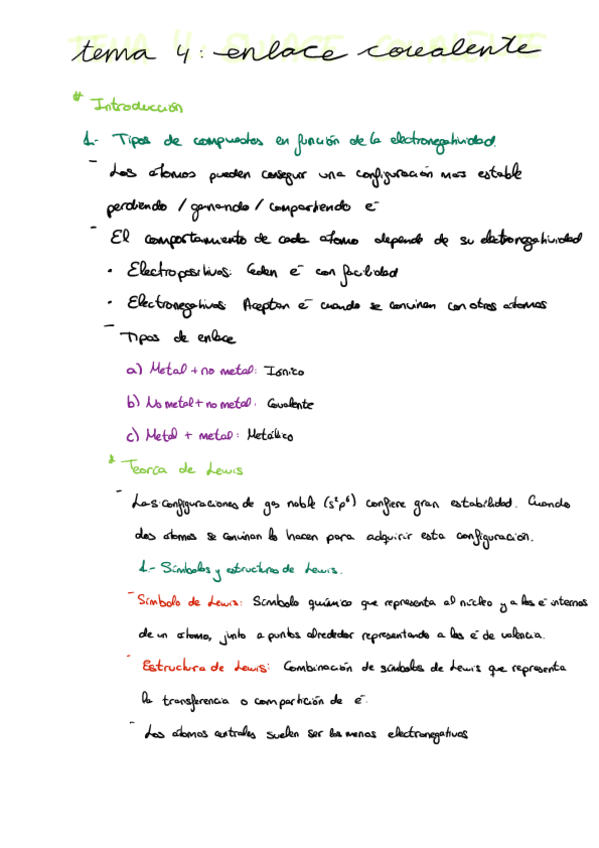 tema 4: enlace covalente
* Introducción
1.- Tipos de compuestos en función de la electronegatividad.
- Los átomos pueden conseguir una configuración más estable
perdiendo / ganando / compartiendo e⁻
- El comportamiento de cada átomo depende de su electronegatividad
• Electropositivos: Ceden e⁻ con facilidad
• Electronegativos: Aceptan e⁻ cuando se convinan con otros átomos
- Tipos de enlace
a) Metal + no metal: Iónico
b) No metal + no metal: Covalente
c) Metal + metal: Metálico
* Teoría de Lewis
- Las configuraciones de gas noble (s²p⁶) confiere gran estabilidad. Cuando
dos átomos se convinan lo hacen para adquirir esta configuración.
1.- Símbolos y estructura de Lewis.
- Símbolo de Lewis: Símbolo químico que representa al núcleo y a los e⁻ internos
de un átomo, junto a puntos alrededor representando a los e⁻ de valencia.
- Estructura de Lewis: Combinación de símbolos de Lewis que representa
la transferencia o compartición de e⁻.
- Los átomos centrales suelen ser los menos electronegativos